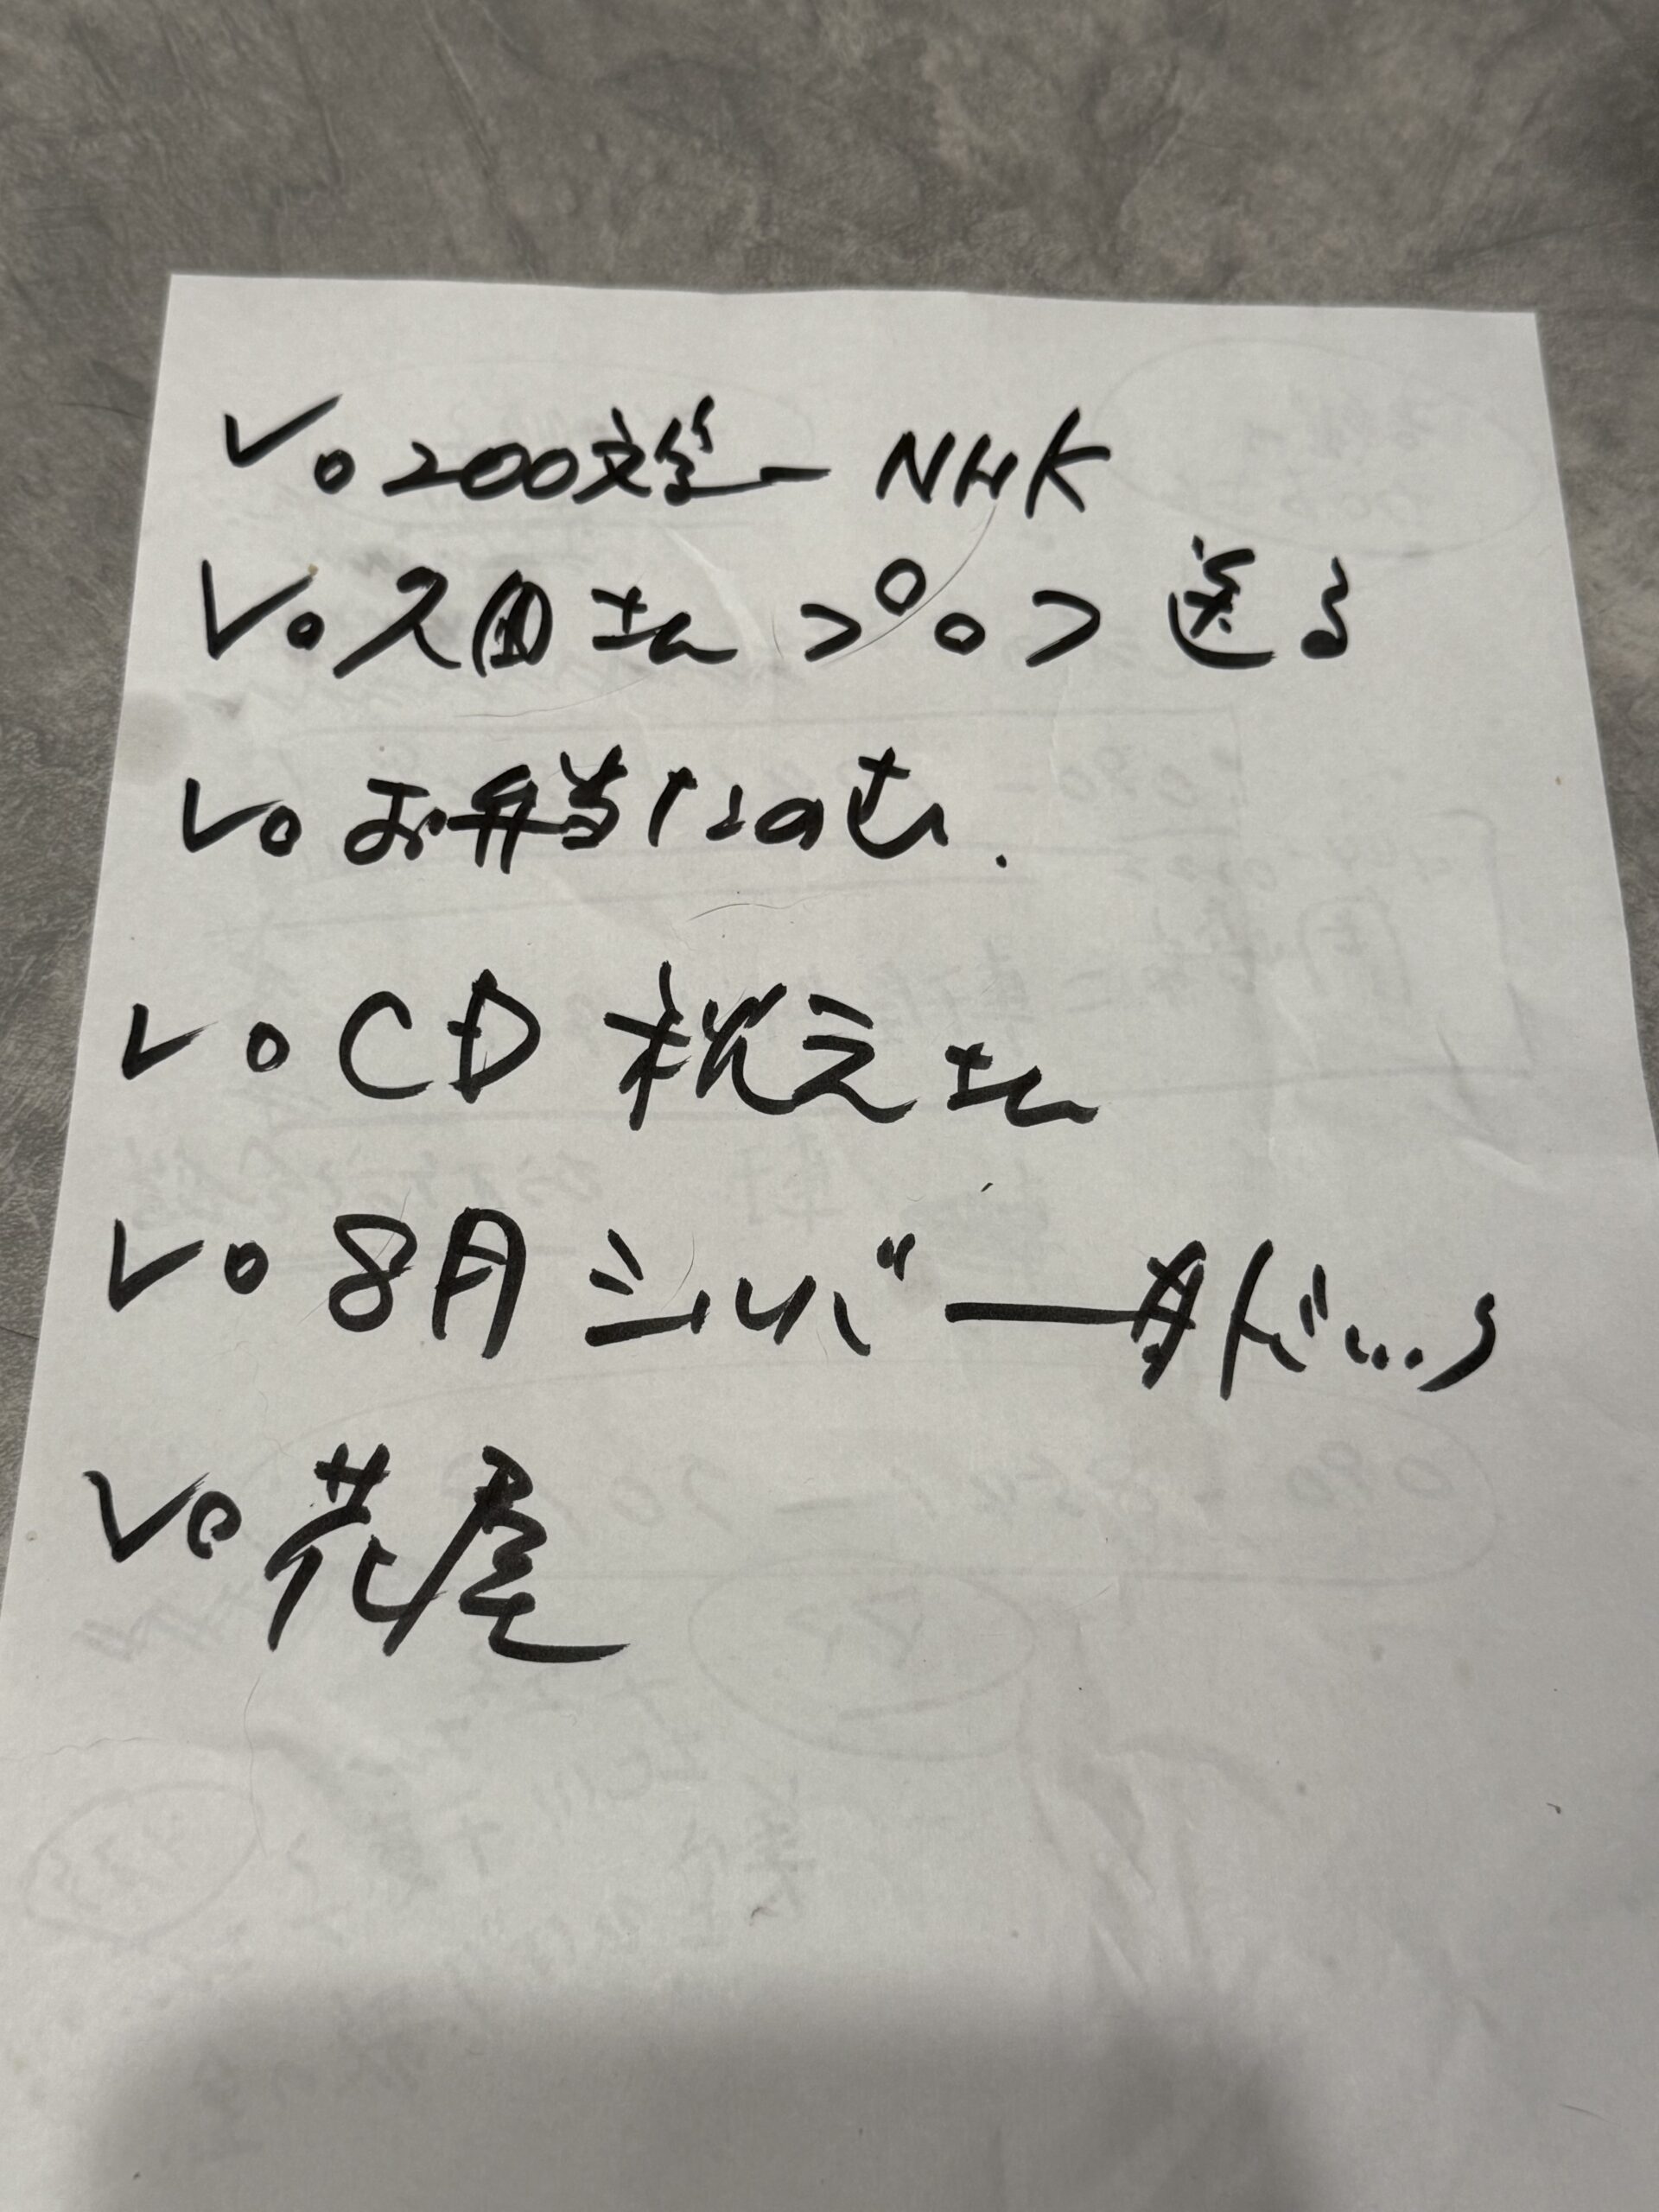 ✓○200文字 NHK
✓○久田さん プロフ送る
✓○お弁当たのむ.
✓○CD 秋元さん
✓○8月シルバー
✓○花屋